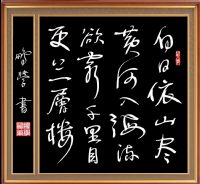 白日依山尽
黄河入海流
欲穷千里目
更上一层楼
鹏学书